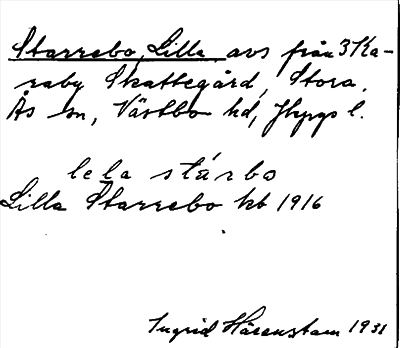 Starrebo, Lilla avs från 3 Ka-
raby Skattegård, Stora.
Ås sn, Västbo hd, Jkpgs l.
lela stárbo
Lilla Starrebo kb 1916
Ingrid Härenstam 1931